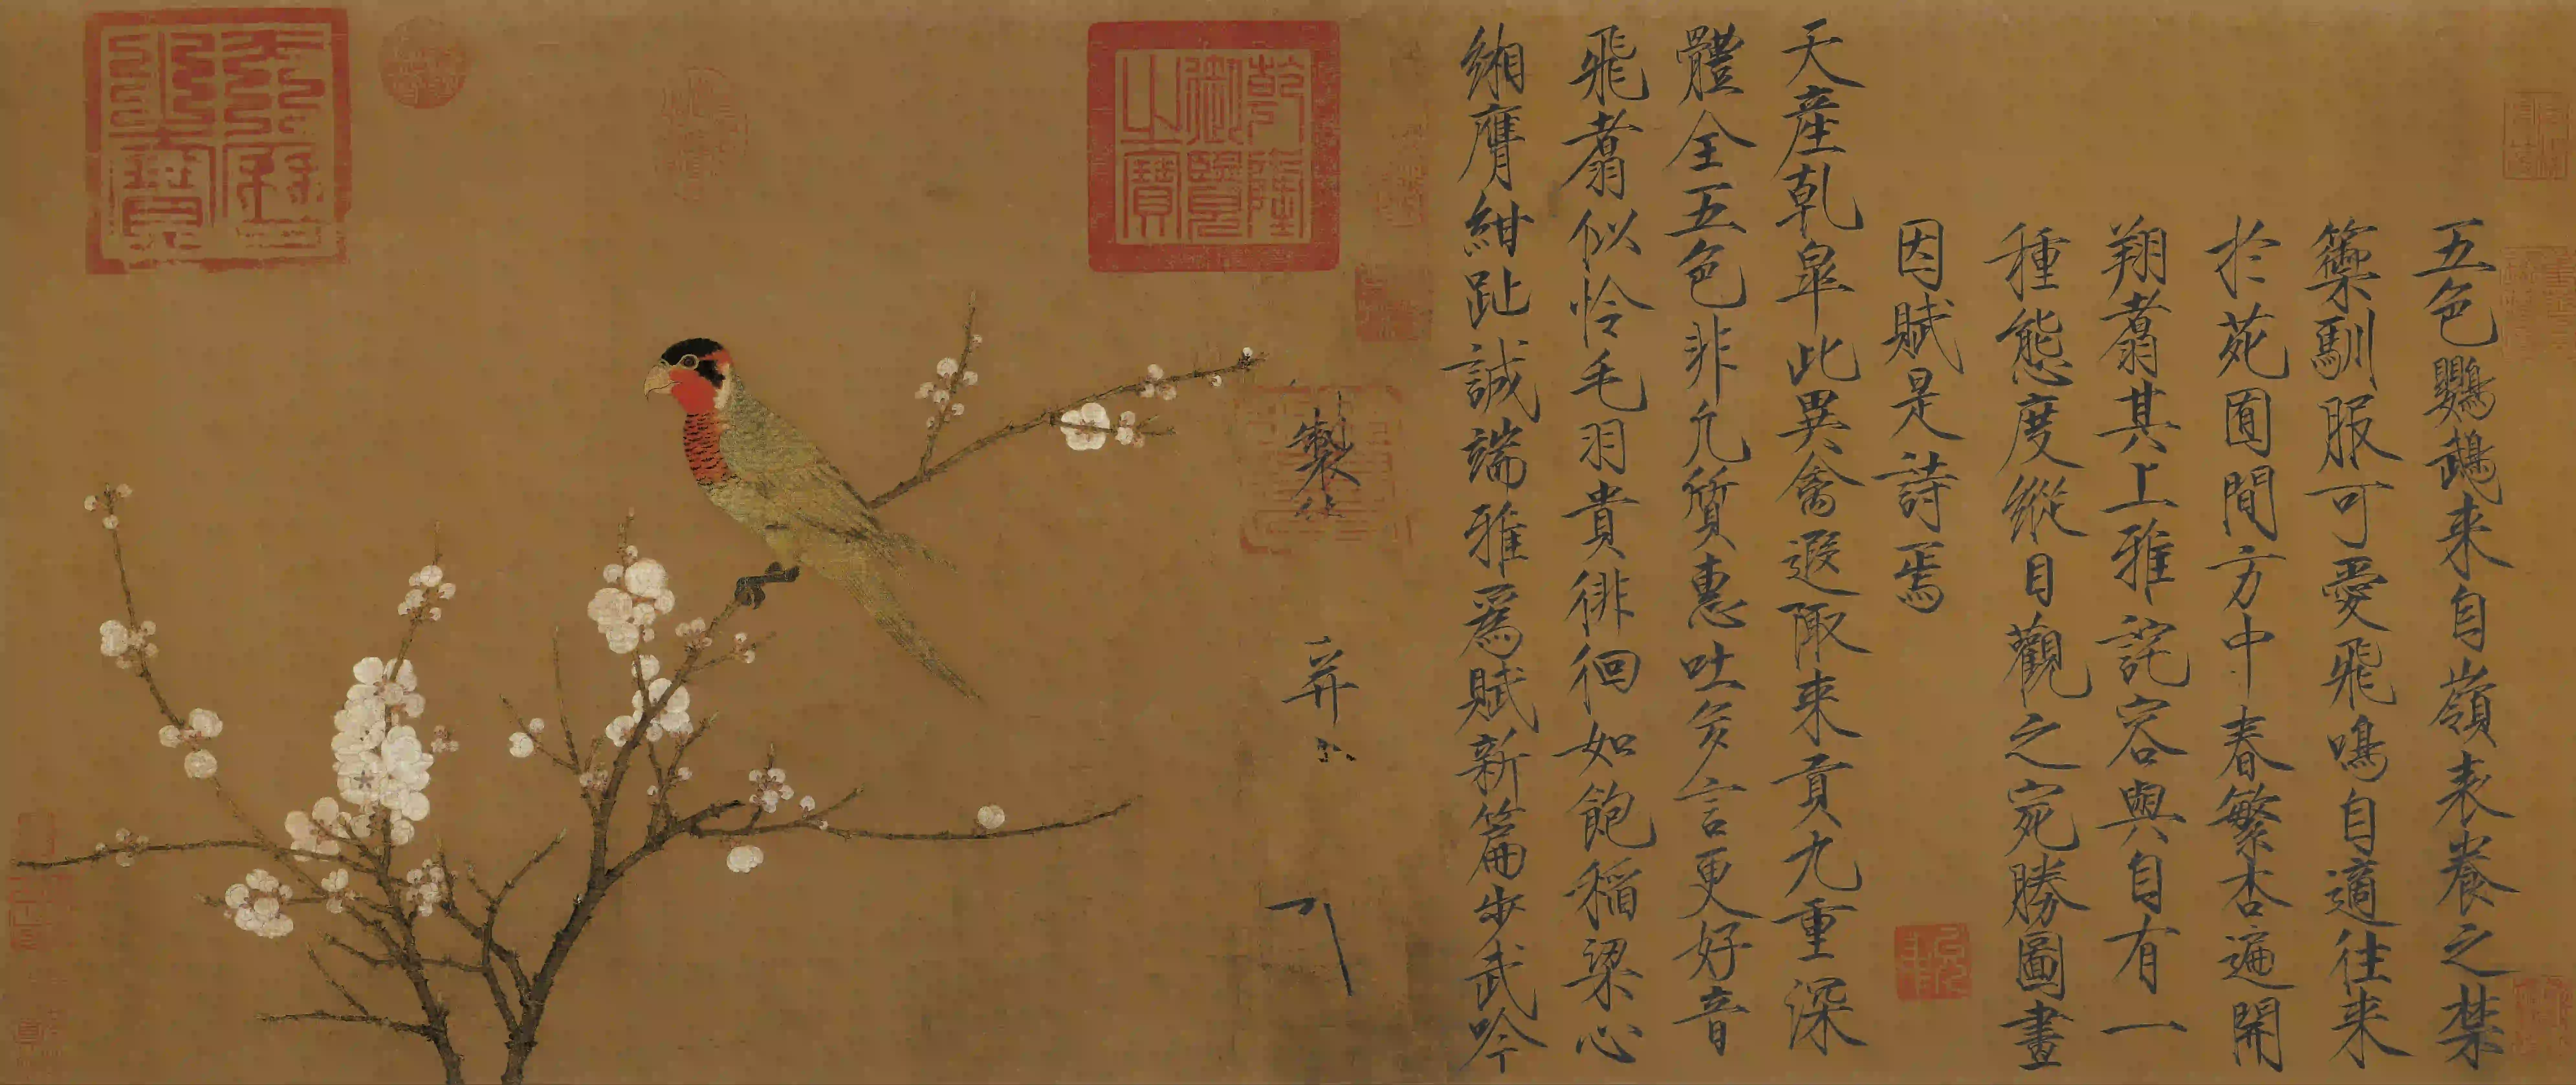 五色鸚鵡来自嶺表養之禁
籞馴服可愛飛鳴自適往来
扵苑囿間方中春繁杏遍開
翔翥其上雅詫容與自有一
種態度縱目觀之宛勝圖畫
因賦是詩焉
天産乾皐此異禽遐陬来貢九重深
體全五色非凡質惠吐多言更好音
飛翥似怜毛羽貴徘徊如飽稲粱心
緗膺紺趾誠端雅爲賦新篇步武吟
製
乾隆御覽之寶